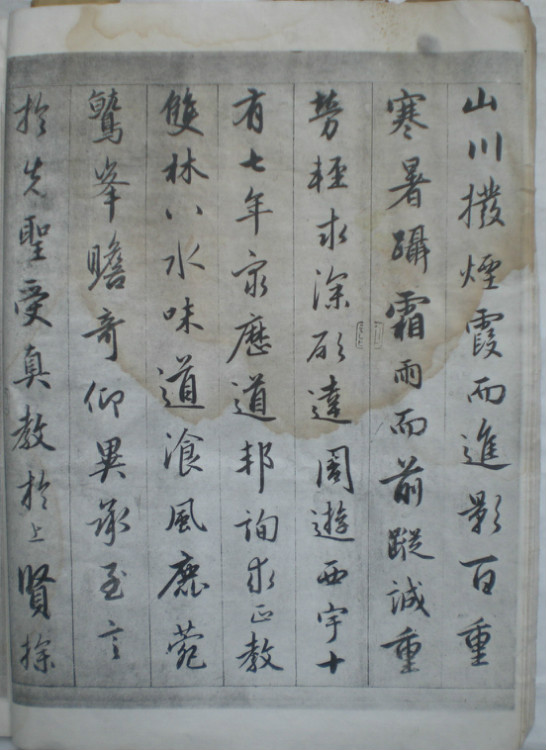 山川撥煙霞而進影百重
寒暑躡霜雨而前蹤誠重
勞輕求深願達周遊西宇十
有七年窮歷道邦詢求正教
雙林八水味道飡風鹿菀
鷲峯瞻奇仰異承至言
於先聖受真教於上賢探